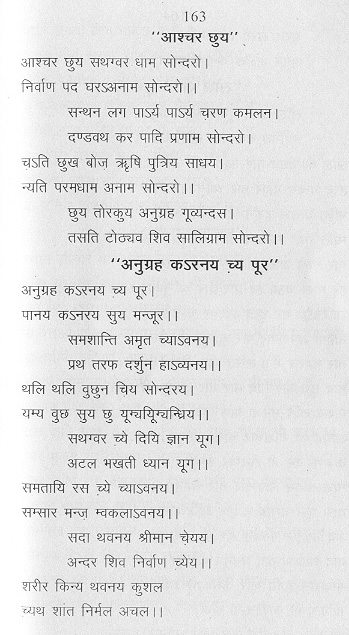 163
"आश्चर छुय"
आश्चर छुय सथग्वर धाम सोन्दरो।
निर्वाण पद घरऽअनाम सोन्दरो।।
सन्थन लग पाऽर्य पाऽर्य चरण कमलन।
दण्डवथ कर पादि प्रणाम सोन्दरो।
च़ऽति छुख बोज़ ऋषि पुत्रिय साधय।
न्यति परमधाम अनाम सोन्दरो।।
छुय तोरकुय अनुग्रह गूव्यन्दस।
तसति टोठ्यव शिव सालिग्राम सोन्दरो।।
"अनुग्रह कऽरनय च़्य पूर"
अनुग्रह कऽरनय च़्य पूर।
पानय कऽनरय सुय मन्जूर।।
समशान्ति अमृत च्याऽवनय।
प्रथ तरफ दर्शुन हाऽव्यनय।।
थलि थलि वुछुन चिय सोन्दरय।
यम्य वुछ सुय छु यूग्ययूिग्यन्घ्रिय।।
सथग्वर च्ये दियि ज्ञान यूग।
अटल भखती ध्यान यूग।।
समतायि रस च़्ये च्याऽवनय।
सम्सार मन्ज़ म्वकलाऽवनय।।
सदा थवनय श्रीमान च़ेयय।
अन्दर शिव निर्वाण च्येय।।
शरीर किन्य थवनय कुशल
च़्यथ शांत निर्मल अचल।।